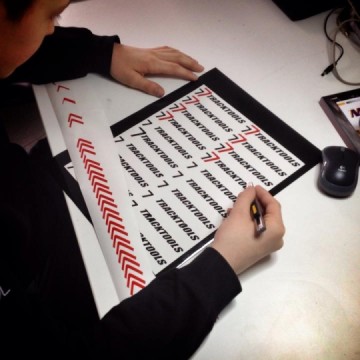 TRACKTOOLS
TRACKTOOLS
TRACKTOOLS
TRACKTOOLS
TRACKTOOLS
TRACKTOOLS
TRACKTOOLS
TRACKTOOLS
TRACKTOOLS
TRACKTOOLS
TRACKTOOLS
TRACKTOOLS
TRACKTOOLS
TRACKTOOLS